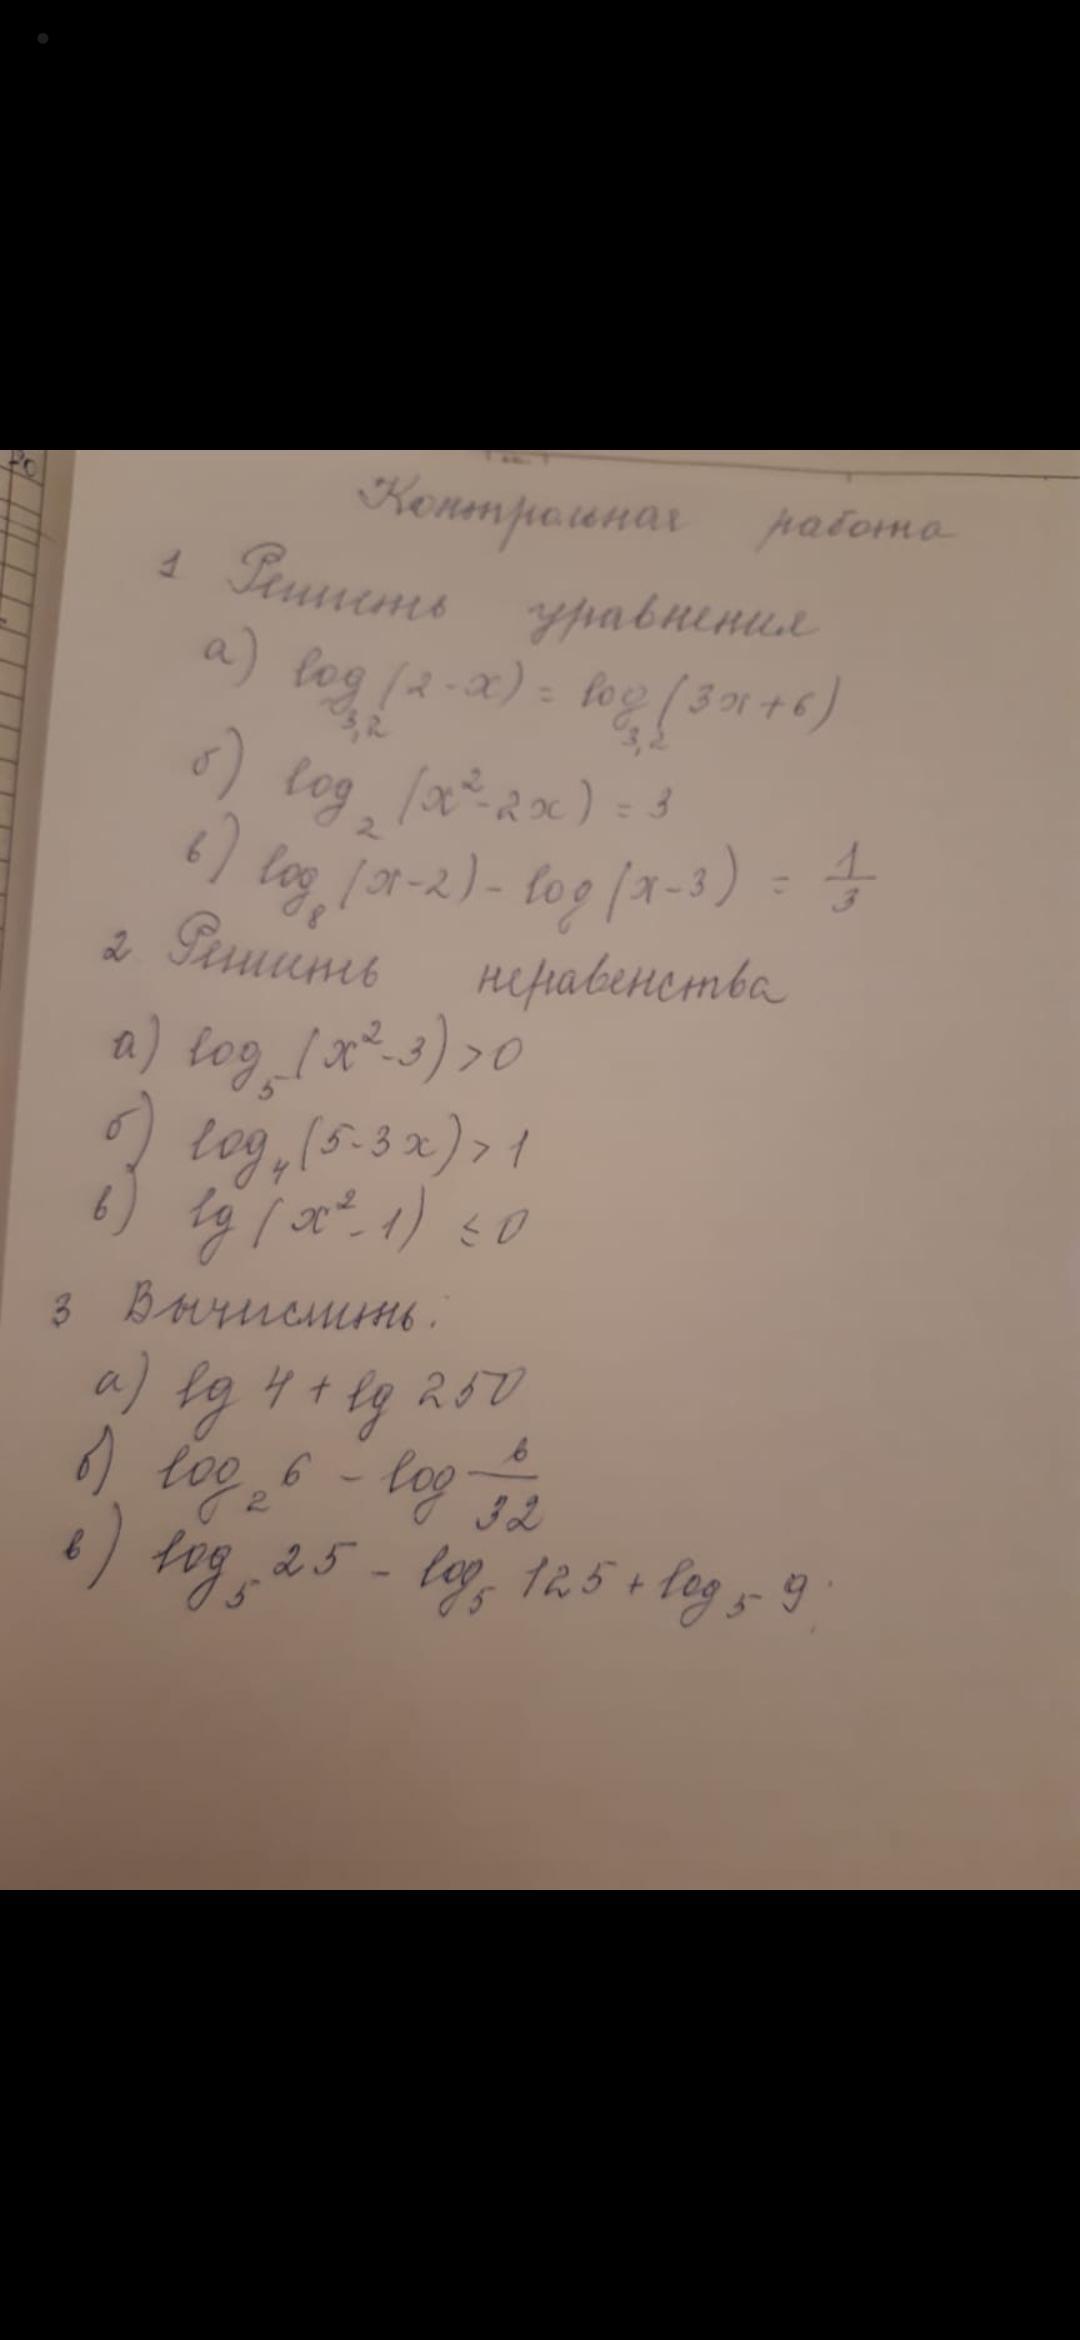 20
Контрольная работа
1 Решить уравнения
а) log₃,₂(2-x) = log₃,₂(3x+6)
б) log₂(x²-2x) = 3
в) log₈(x-2) - log(x-3) = 1/3
2 Решить неравенства
а) log₅(x²-3) > 0
б) log₄(5-3x) > 1
в) lg(x²-1) ≤ 0
3 Вычислить:
а) lg 4 + lg 250
б) log₂ 6 - log 6/32
в) log₅ 25 - log₅ 125 + log₅ 9